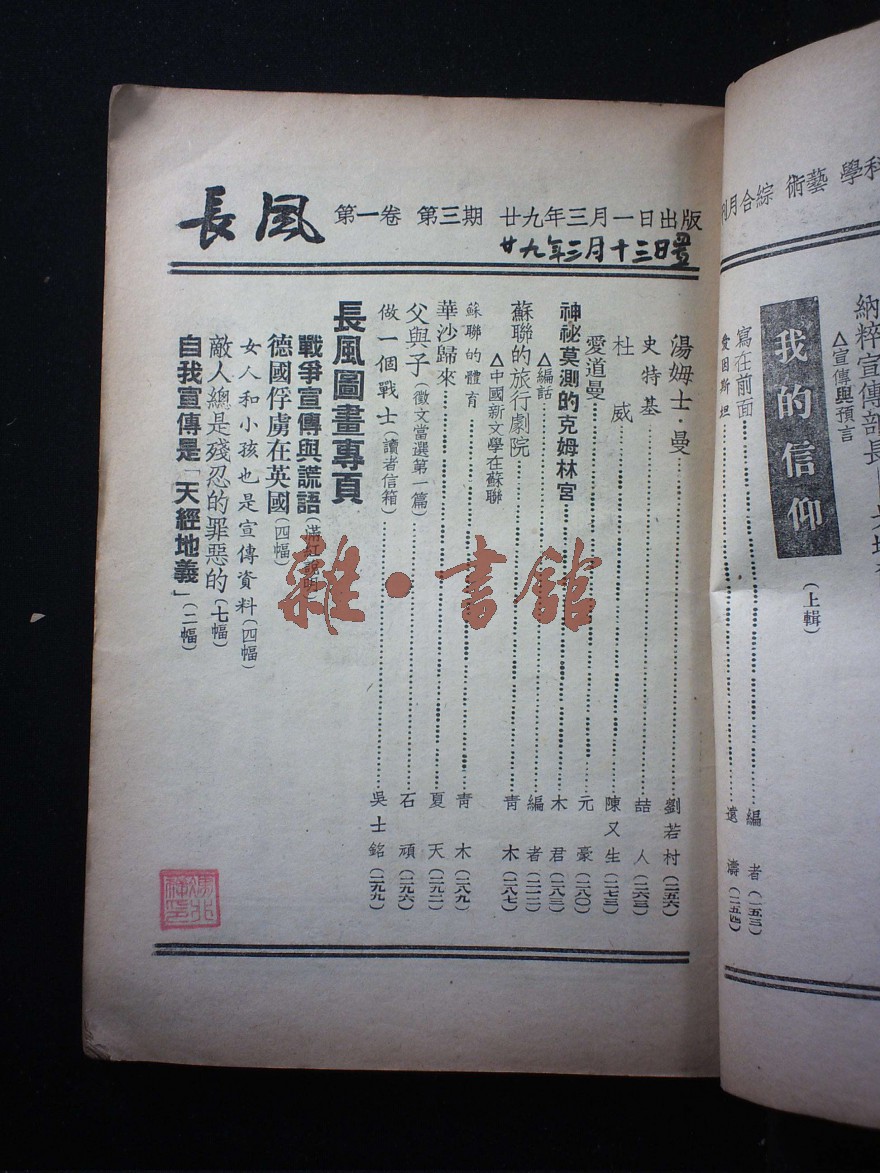 科學 藝術 綜合月刊
納粹宣傳部長
△宣傳與預言
我的信仰
(上輯)
寫在前面……編者(二五三)
愛因斯坦……遠濤(二五四)
長風 第一卷 第三期 廿九年三月一日出版
廿九年三月十三日置
湯姆士·曼……劉若村(二五六)
史特基……喆人(二六三)
杜威……陳又生(二七三)
愛道曼……元豪(二八〇)
神祕莫測的克姆林宮……木君(二八三)
△編話……編者(二二二)
蘇聯的旅行劇院……青木(二八七)
△中國新文學在蘇聯
蘇聯的體育……青木(二八九)
華沙歸來……夏天(二九二)
父與子(徵文當選第一篇)……石頑(二九六)
做一個戰士(讀者信箱)……吳士銘(二九九)
長風圖畫專頁
戰爭宣傳與謊語(滿紅說明)
德國俘虜在英國(四幅)
女人和小孩也是宣傳資料(四幅)
敵人總是殘忍的罪惡的(七幅)
自我宣傳是「天經地義」(二幅)
雜·書館